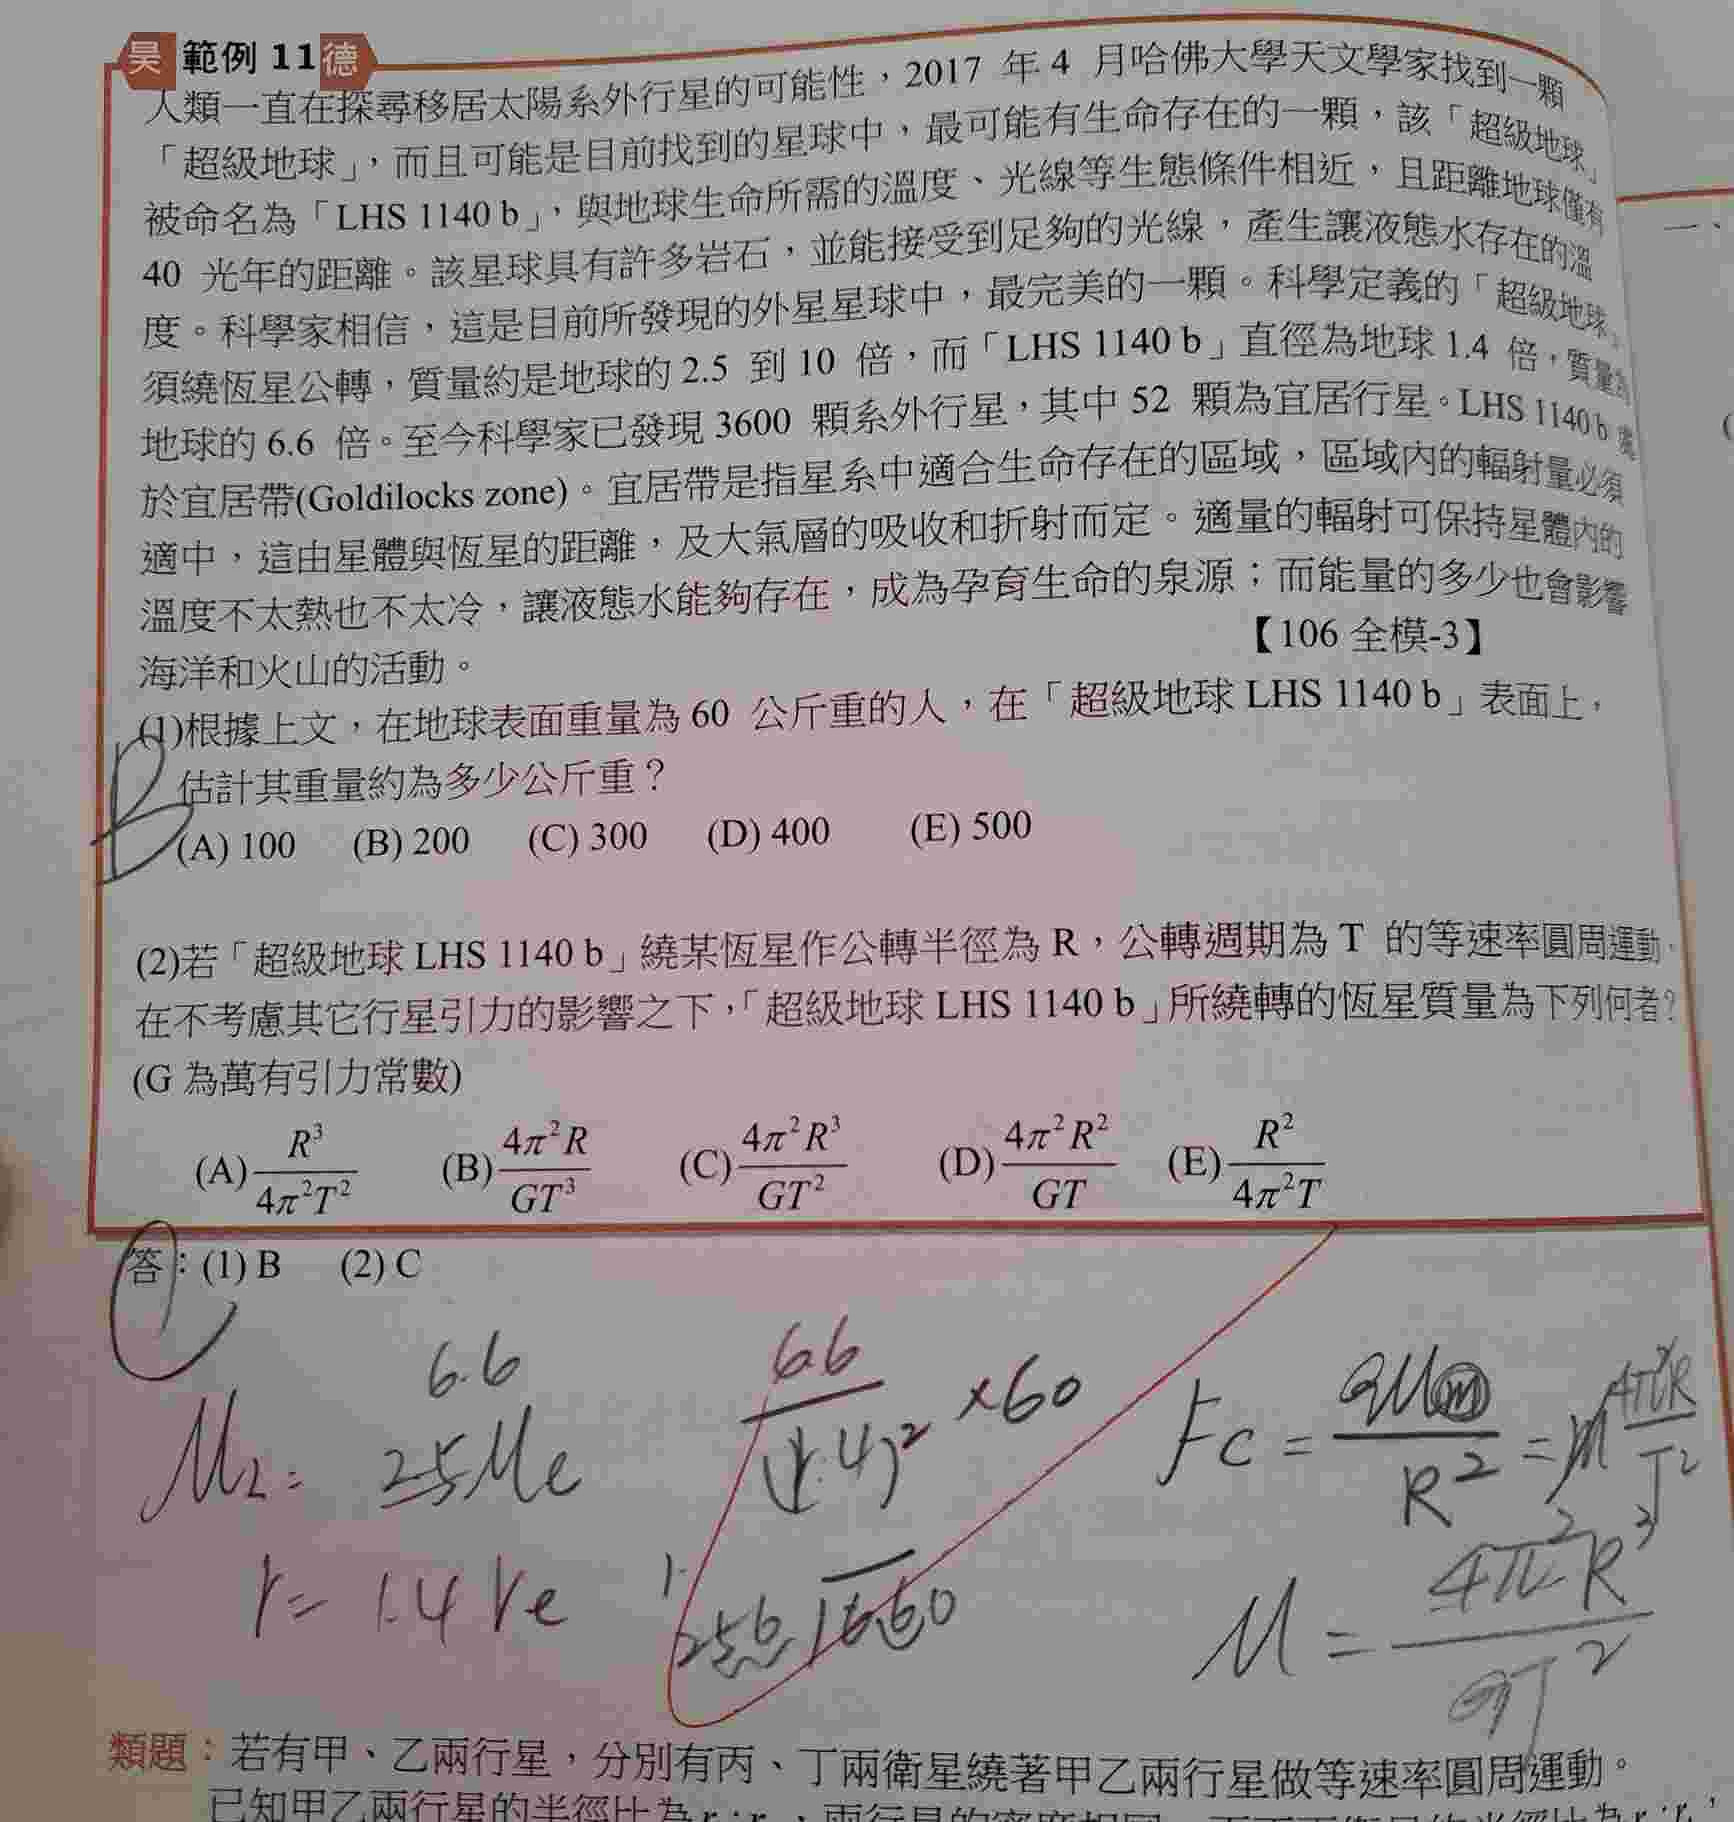 昊 範例 11 德
人類一直在探尋移居太陽系外行星的可能性，2017 年 4 月哈佛大學天文學家找到一顆
「超級地球」，而且可能是目前找到的星球中，最可能有生命存在的一顆，該「超級地球」
被命名為「LHS 1140 b」，與地球生命所需的溫度、光線等生態條件相近，且距離地球僅有
40 光年的距離。該星球具有許多岩石，並能接受到足夠的光線，產生讓液態水存在的溫
度。科學家相信，這是目前所發現的外星星球中，最完美的一顆。科學定義的「超級地球」
須繞恆星公轉，質量約是地球的 2.5 到 10 倍，而「LHS 1140 b」直徑為地球 1.4 倍，質量為
地球的 6.6 倍。至今科學家已發現 3600 顆系外行星，其中 52 顆為宜居行星。LHS 1140 b 處
於宜居帶(Goldilocks zone)。宜居帶是指星系中適合生命存在的區域，區域內的輻射量必須
適中，這由星體與恆星的距離，及大氣層的吸收和折射而定。適量的輻射可保持星體內的
溫度不太熱也不太冷，讓液態水能夠存在，成為孕育生命的泉源；而能量的多少也會影響
海洋和火山的活動。
【106 全模-3】
(1)根據上文，在地球表面重量為 60 公斤重的人，在「超級地球 LHS 1140 b」表面上，
B
估計其重量約為多少公斤重？
(A) 100 (B) 200 (C) 300 (D) 400 (E) 500
(2)若「超級地球 LHS 1140 b」繞某恆星作公轉半徑為 R，公轉週期為 T 的等速率圓周運動，
在不考慮其它行星引力的影響之下，「超級地球 LHS 1140 b」所繞轉的恆星質量為下列何者？
(G 為萬有引力常數)
(A) R³/4π²T² (B) 4π²R/GT³ (C) 4π²R³/GT² (D) 4π²R²/GT (E) R²/4π²T
答：(1) B (2) C
6.6
M₂ = 25Me
6.6/(1.4)² ×60
Fc = GMm/R² = m 4π²R/T²
r = 1.4 re
M = 4π²R³/GT²
類題：若有甲、乙兩行星，分別有丙、丁兩衛星繞著甲乙兩行星做等速率圓周運動。